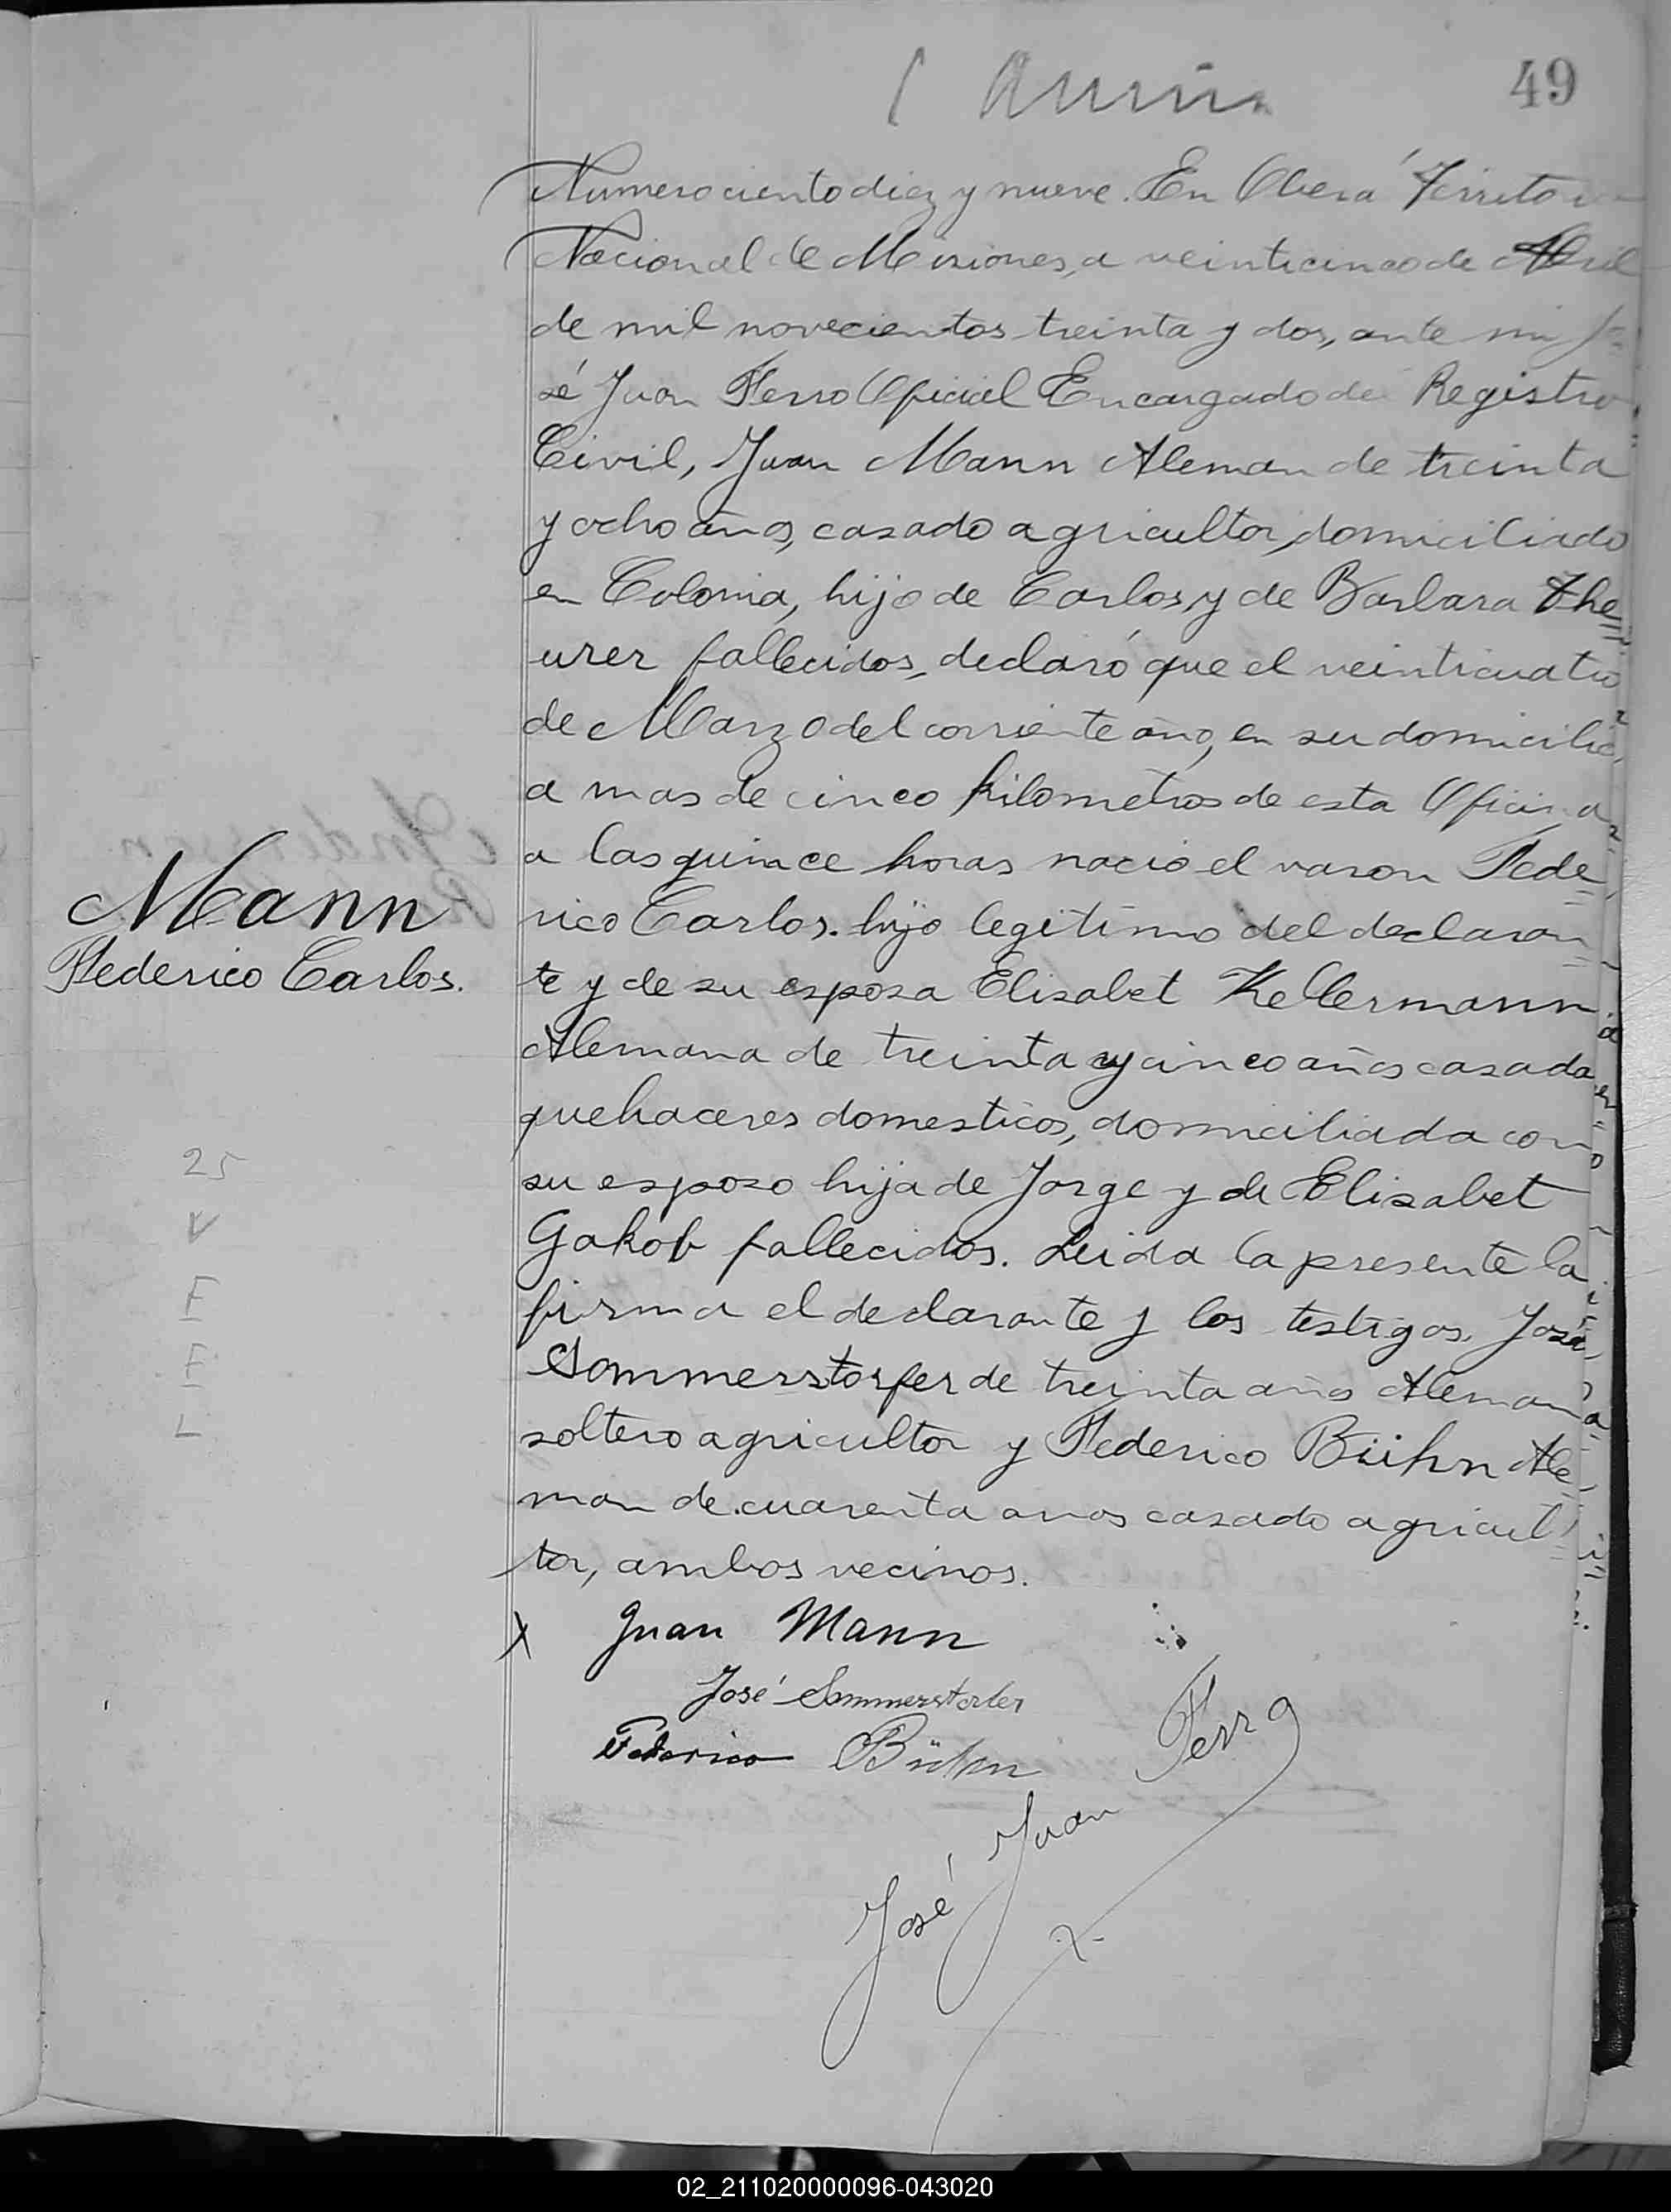 49
Numero ciento diez y nueve. En Oberá Territorio
Nacional de Misiones, a veinticinco de Abril
de mil novecientos treinta y dos, ante mi Jo=
sé Juan Ferro Oficial Encargado del Registro
Civil, Juan Mann Aleman de treinta
y ocho años, casado agricultor, domiciliado
en Colonia, hijo de Carlos y de Barbara The=
urer fallecidos, declaró que el veinticuatro
de Marzo del corriente año, en su domicilio,
a mas de cinco kilometros de esta Oficina
a las quince horas nacio el varon Fede=
rico Carlos. hijo legitimo del declaran=
te y de su esposa Elisabet Kellermann
Alemana de treinta y cinco años casada
quehaceres domesticos, domiciliada con
su esposo hija de Jorge y de Elisabet
Gakob fallecidos. Leida la presente la
firma el declarante y los testigos, José
Sommerstorfer de treinta años Aleman
soltero agricultor y Federico Bühn Ale=
man de cuarenta anos casado agricul=
tor, ambos vecinos.
Mann
Federico Carlos.
25
V
F
F
L
X Juan Mann
José Sommerstorfer
Federico Bühn
José Juan Ferro
02_211020000096-043020